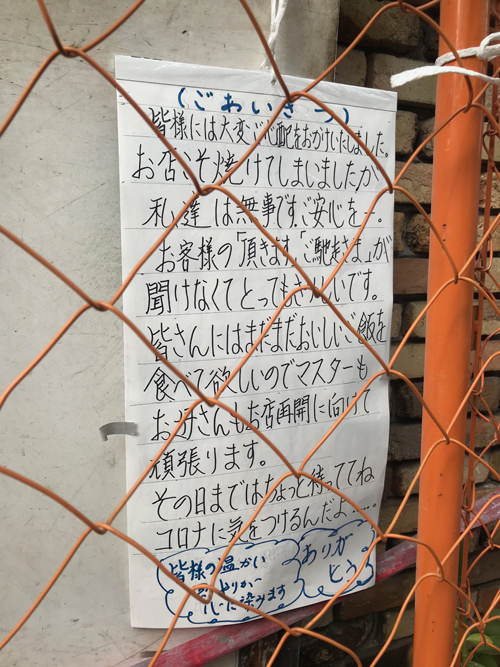 (ごあいさつ)
皆様には大変ご心配をおかけいたしました。
お店こそ焼けてしまいましたが
私達は無事ですご安心を―。
お客様の「頂きます」「ご馳走さま」が
聞けなくてとってもさみしいです。
皆さんにはまだまだおいしいご飯を
食べて欲しいのでマスターも
お母さんもお店再開に向けて
頑張ります。
その日まではちょっと待っててね
コロナに気をつけるんだよ……
皆様の温かい
思いやりが
心に染みます
ありが
とう